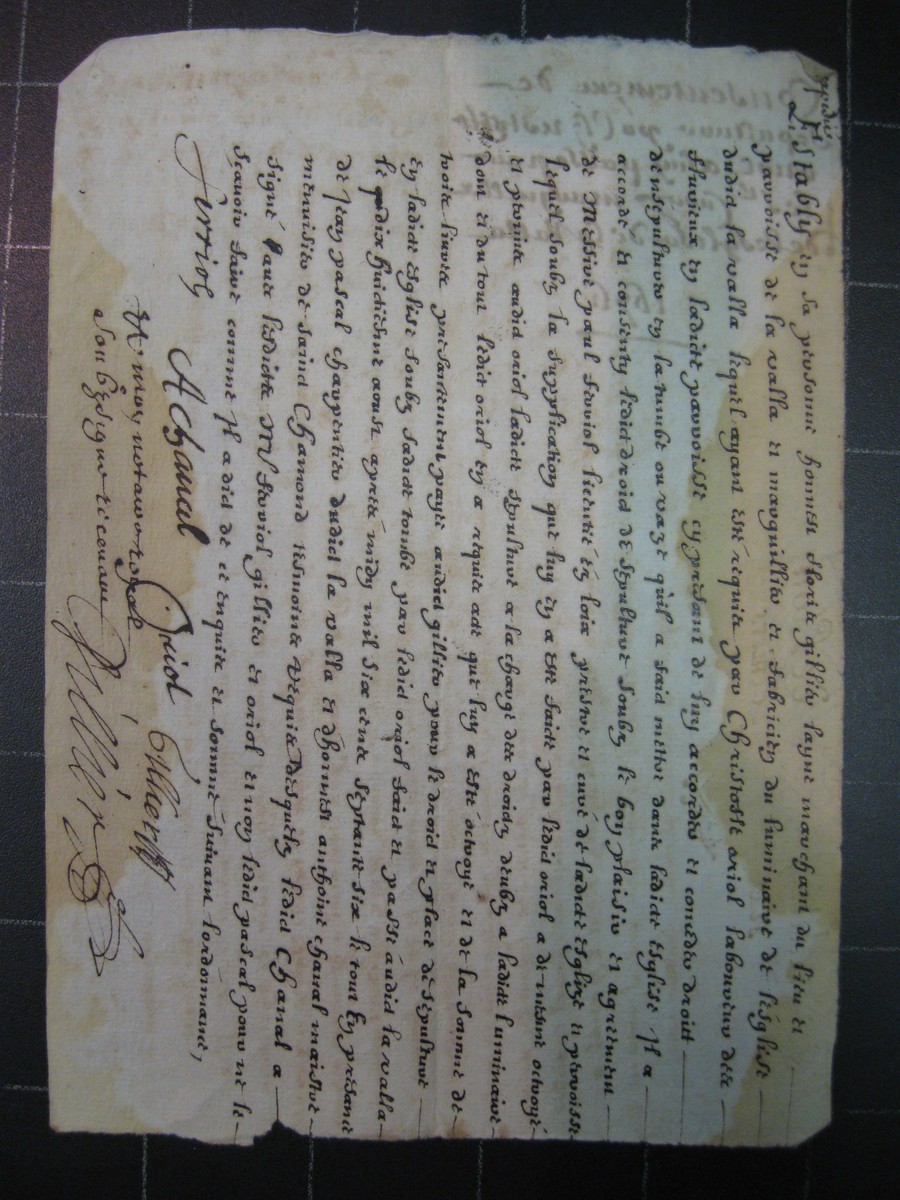 Expedié
Establÿ en sa personne honneste floris gillier laysné marchant du lieu et
parroisse de la valla et marguillier et fabricien du luminaire de l'esglise
dudict la valla lequel ayant esté requis par Christofle oriol laboureur des
fluvieux en ladicte parroisse cy présant de luy accorder et conceder droict
de sepulture en la tumbe ou vaze qu'il a faict mettre dans ladicte esglise Il a
accordé et consenty ledict droict de sepulture soubz le bon plaisir et agrement
de Messire paul fluviol licentié ez loix prestre et curé de ladicte esglize et parroisse
lequel soubz la supplication que luy en a esté faicte par ledict oriol a de mesme octroyé
et promis audict oriol ladicte sepulture a la charge des droictz deubz a ladicte luminaire
dont et du tout ledict oriol en a requis acte que luy a esté octroyé et de la somme de
trois livres présantement payée audict gillier pour le droict et place de sepulture
en ladicte esglise soubz sadicte tombe par ledict oriol faict et passé audict la valla
le dix huictiesme aoust apres midy mil six cents septante six le tout En présance
de Jean pascal charpentier dudict la valla et d'honneste anthoine chanal maistre
menuisier de sainct Chamond tesmoins requis desquelz ledict Chanal a
signé avec lesdicts Mre fluviol gillier et oriol et non ledict pascal pour ne le
scavoir faire comme Il a dict de ce enquis et sommé suivant l'ordonnance,
fluviol A Chanal Oriol Gillier
Et moy notaire royal
soubzsigné recevant